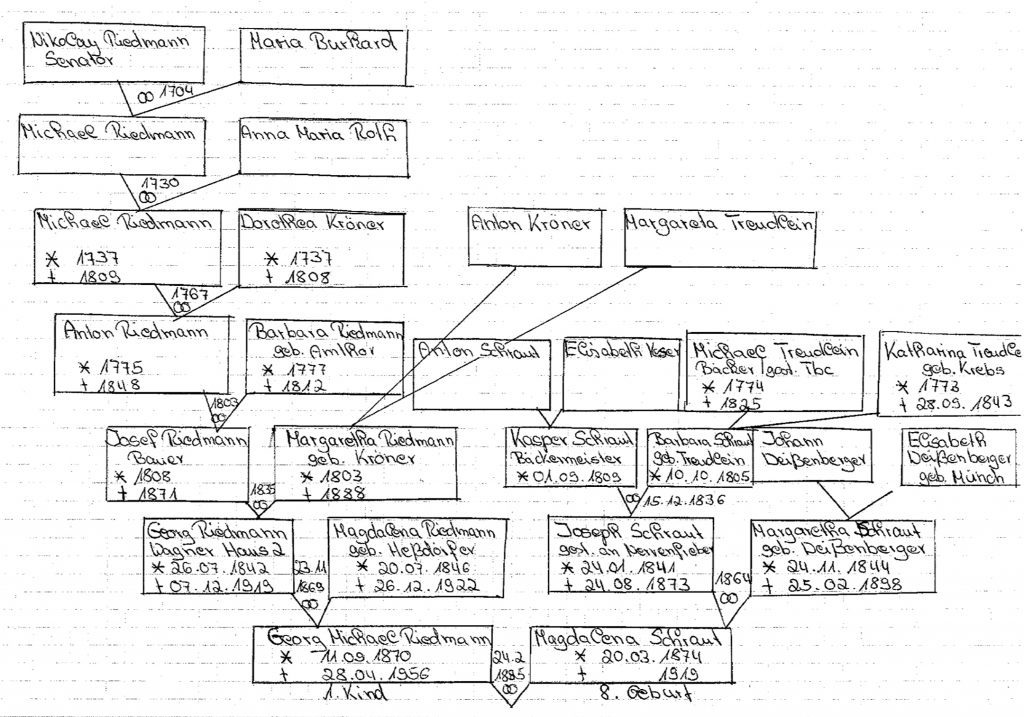 Nikolay Riedmann
Senator
Maria Burkard
∞ 1704
Michael Riedmann
Anna Maria Roth
1730
∞
Michael Riedmann
* 1737
† 1809
Dorothea Kröner
* 1737
† 1808
Anton Kröner
Margareta Treudlein
1767
∞
Anton Riedmann
* 1775
† 1848
Barbara Riedmann
geb. Amthor
* 1777
† 1812
Anton Schraut
Elisabeth
Michael Treudlein
Bäcker gest. Tbc
* 1774
† 1825
Katharina Treudle
geb. Krebs
* 1773
† 28.09.1843
1803
∞
Josef Riedmann
Bauer
* 1808
† 1871
Margaretha Riedmann
geb. Kröner
* 1803
† 1888
Kasper Schraut
Bäckermeister
* 01.09.1809
Barbara Schraut
geb. Treudlein
* 10.10.1805
Johann
Deißenberger
Elisabeth
Deißenberger
geb. Münch
1835
∞
∞ 15.12.1836
Georg Riedmann
Wagner Haus 2
* 26.07.1842
† 07.12.1919
Magdalena Riedmann
geb. Heßdörfer
* 20.07.1846
† 26.12.1922
Joseph Schraut
gest. an Nervenfieber
* 24.01.1841
† 24.08.1873
Margaretha Schraut
geb. Deißenberger
* 24.11.1844
† 25.02.1898
23.11
1869
∞
1864
∞
Georg Michael Riedmann
* 11.09.1870
† 28.04.1956
1. Kind
Magdalena Schraut
* 20.03.1874
† 1919
8. Geburt
24.2
1895
∞